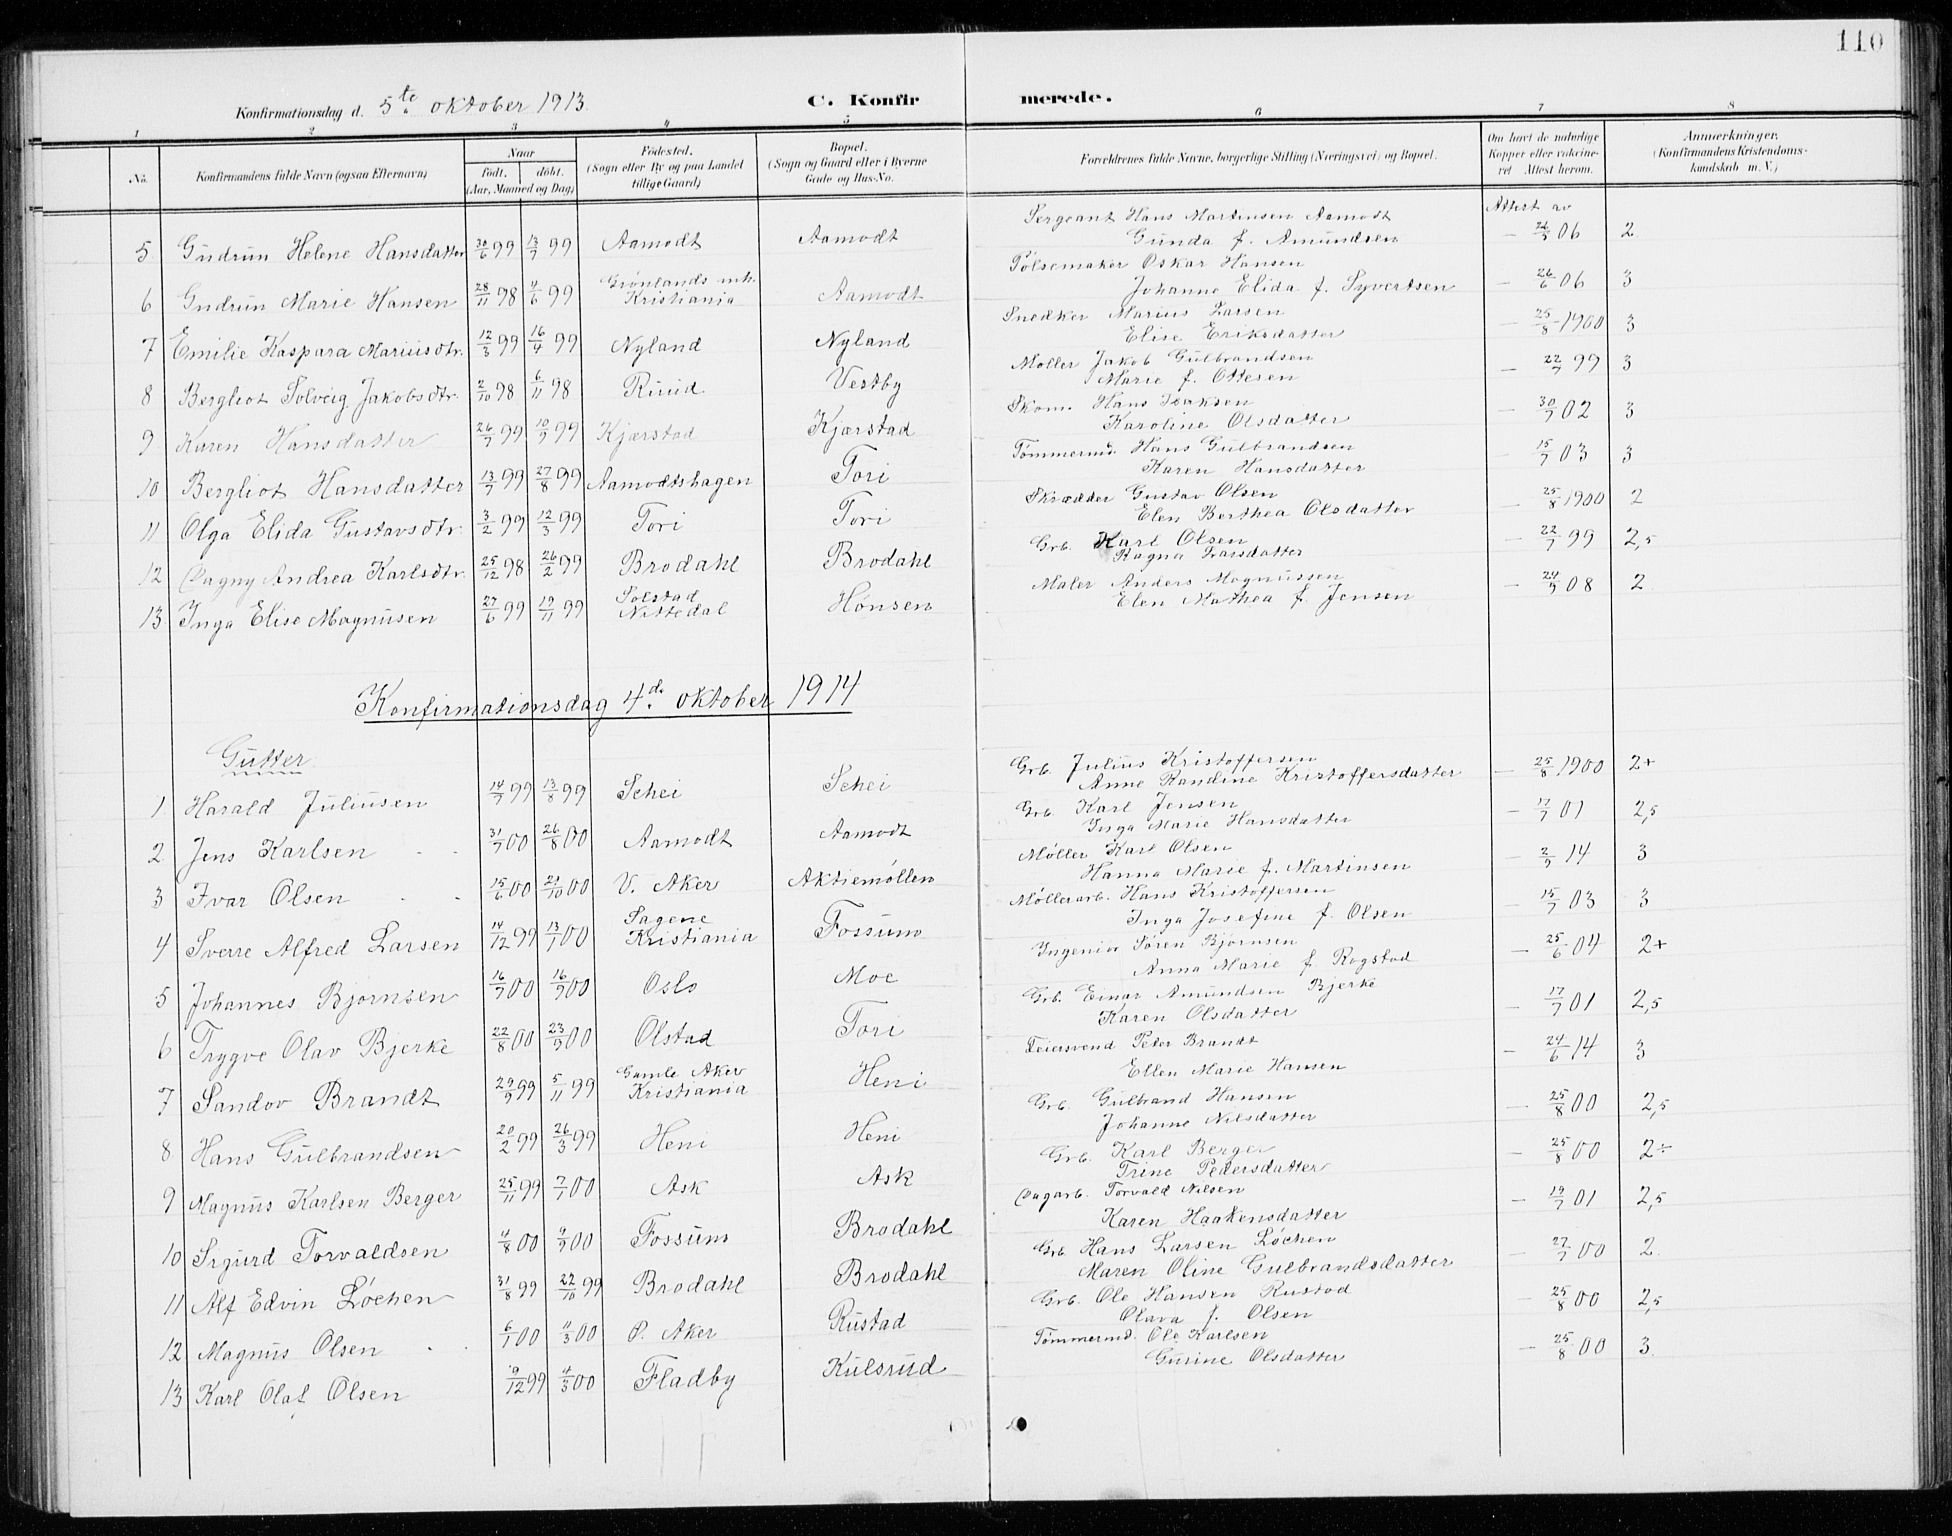 110
Konfirmationsdag d. 5te oktober 1913.
C. Konfirmerede.
1 2 3 4 5 6 7 8
No.
Konfirmandens fulde Navn (ogsaa Efternavn)
Naar
født. døbt.
(Aar, Maaned og Dag)
Fødested.
(Sogn eller By og paa Landet
tillige Gaard)
Bopæl.
(Sogn og Gaard eller i Byerne
Gade og Hus-No.
Forældrenes fulde Navne, borgerlige Stilling (Næringsvei) og Bopæl.
Om havt de naturlige
Kopper eller vakcine-
ret Attest herom.
Anmærkninger.
(Konfirmandens Kristendoms-
kundskab m. V.)
Attest av
5 Gudrun Helene Hansdatter 30/6 99 13/7 99 Aamodt Aamodt Sergeant Hans Martinsen Aamodt
Gunda f. Amundsen — 06 2
6 Gudrun Marie Hansen 28/11 98 4/6 99 Grønlands mh. Kristiania Aamodt Pølsemaker Oskar Hansen
Johanne Elida f. Syvertsen — 26/6 06 3
7 Emilie Kaspara Mariusdtr. 12/3 99 16/4 99 Nyland Nyland Snedker Marius Larsen
Elise Eriksdatter — 25/8 1900 3
8 Bergliot Solveig Jakobsdtr. 2/10 98 6/11 98 Ruud Vestby Møller Jakob Gulbrandsen
Marie f. Ottesen — 22/7 99 3
9 Karen Hansdatter 26/7 99 10/9 99 Kjærstad Kjærstad Skom. Hans Isaksen
Karoline Olsdatter — 30/7 02 3
10 Bergliot Hansdatter 13/7 99 27/8 99 Aamodtshagen Tori Tømmermd. Hans Gulbrandsen
Karen Hansdatter — 15/7 03 3
11 Olga Elida Gustavsdtr. 3/2 99 12/3 99 Tori Tori Skrædder Gustav Olsen
Elen Berthea Olsdatter — 25/8 1900 2
12 Dagny Andrea Karlsdtr. 25/12 98 26/2 99 Brodahl Brodahl Grb. Karl Olsen
Ragna Larsdatter — 22/7 99 2,5
13 Inga Elise Magnusen 27/6 99 19/11 99 Solstad Nittedal Hønsen Maler Anders Magnussen
Elen Mathea f. Jensen — 24/9 08 2.
Konfirmationsdag 4de. oktober 1914
Gutter
1 Harald Juliusen 14/7 99 13/8 99 Schei Schei Grb. Julius Kristoffersen
Anne Randine Kristoffersdatter — 25/8 1900 2+
2 Jens Karlsen 31/7 00 26/8 00 Aamodt Aamodt Grb. Karl Jensen
Inga Marie Hansdatter — 17/7 01 2,5
3 Ivar Olsen 15/6 00 21/10 00 V. Aker Aktiemøllen Møller Karl Olsen
Hanna Marie f. Martinsen — 2/9 14 3
4 Sverre Alfred Larsen 14/12 99 13/1 00 Sagene Kristiania Fossum Møllerarb. Hans Kristoffersen
Inga Josefine f. Olsen — 15/7 03 3
5 Johannes Bjørnsen 16/7 00 16/9 00 Oslo Moe Ingeniør Søren Bjørnsen
Anna Marie f. Rogstad — 25/6 04 2+
6 Trygve Olav Bjerke 22/8 00 23/9 00 Olstad Tori Grb. Einar Amundsen Bjerke
Karen Olsdatter — 17/7 01 2,5
7 Sandov Brandt 29/9 99 5/11 99 Gamle Aker Kristiania Heni Feiersvend Peter Brandt
Ellen Marie Hansen — 24/6 14 3
8 Hans Gulbrandsen 20/2 99 26/3 99 Heni Heni Grb. Gulbrand Hansen
Johanne Nilsdatter — 25/8 00 2,5
9 Magnus Karlsen Berger 25/11 99 7/1 00 Ask Ask Grb. Karl Berger
Trine Pedersdatter — 25/8 00 2÷
10 Sigurd Torvaldsen 4/8 00 9/9 00 Fossum Brodahl Dagarb. Torvald Nilsen
Karen Haakensdatter — 19/7 01 2,5
11 Alf Edvin Løchen 31/8 99 22/10 99 Brodahl Brodahl Grb. Hans Larsen Løchen
Maren Oline Gulbrandsdatter — 27/7 00 2.
12 Magnus Olsen 6/1 00 11/3 00 Ø. Aker Rustad Grb. Ole Hansen Rustad
Olava f. Olsen — 25/8 00 2,5
13 Karl Olaf Olsen 99 4/3 00 Fladby Kulsrud Tømmermd. Ole Karlsen
Gurine Olsdatter — 25/8 00 3.